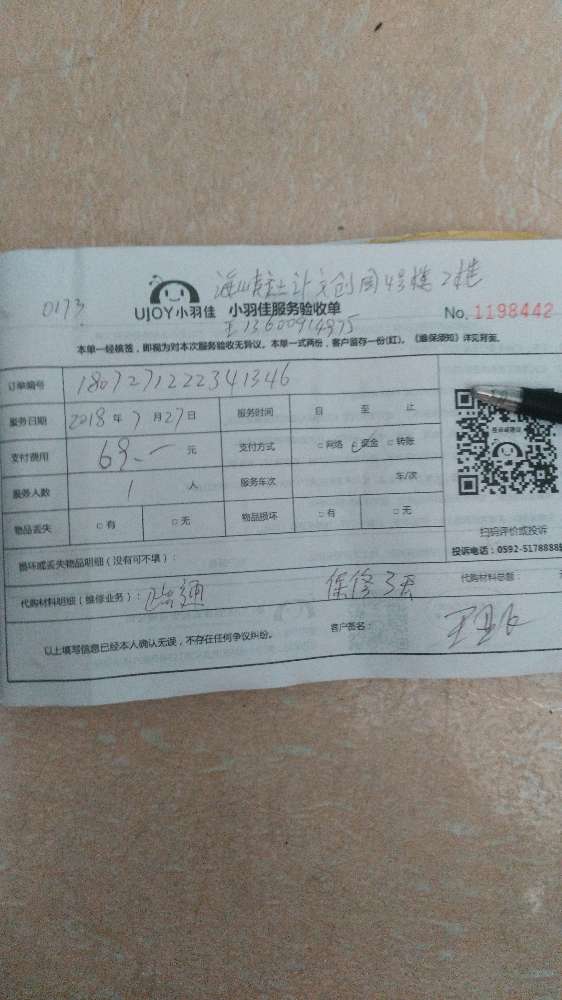 4号楼2楼
0173
UJOY小羽佳 小羽佳服务验收单 No. 1198442
王13600914975
本单一经核签，即视为对本次服务验收无异议。本单一式两份，客户留存一份(红)。《维保须知》详见背面。
订单编号 1807271222341346
服务日期 2018年7月27日 服务时间 自 至 止
支付费用 69.一 元 支付方式 □网络 □现金 □转账
服务人数 1 人 服务车次 车/次
物品丢失 □有 □无 物品损坏 □有 □无
投诉或建议
扫码评价或投诉
投诉电话：0592-5178888
损坏或丢失物品明细（没有可不填）：
代购材料明细（维修业务）： 疏通 保修3天 代购材料总额：
以上填写信息已经本人确认无误，不存在任何争议纠纷。 客户签名：